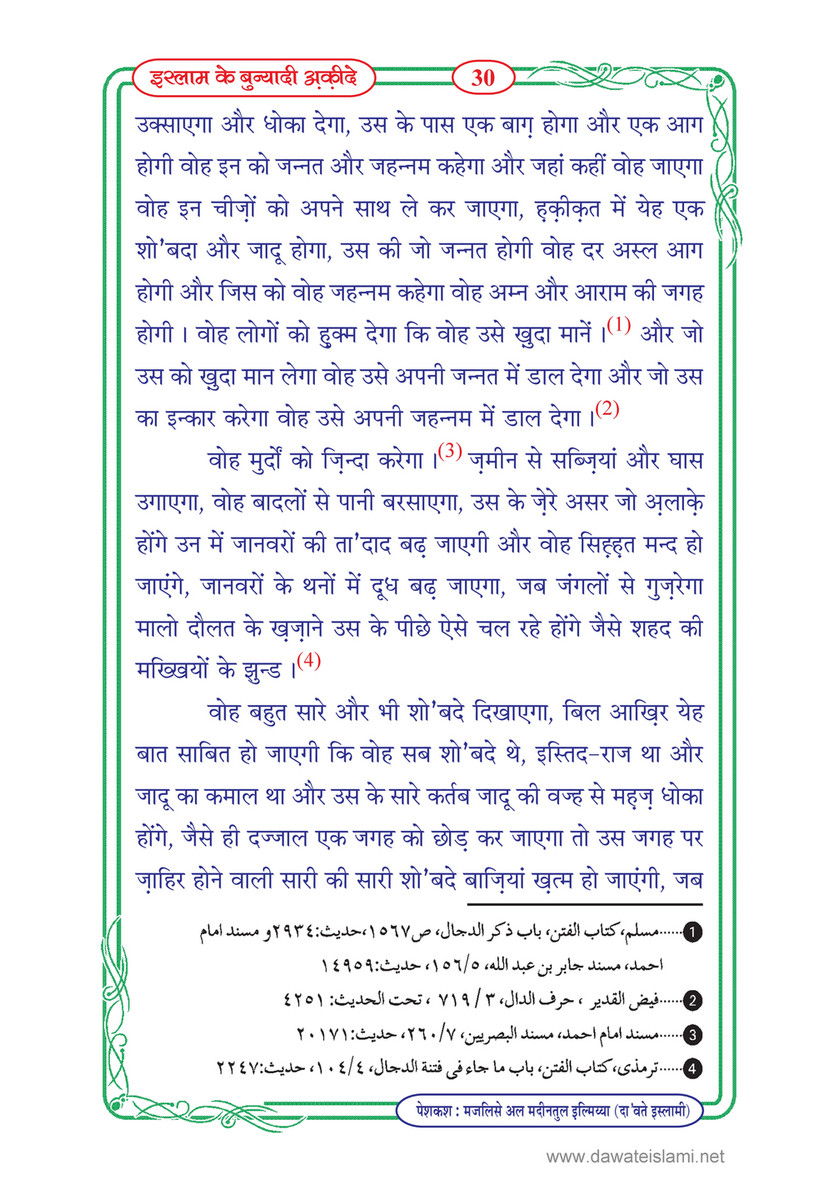 इस्लाम के बुन्यादी अ़क़ीदे
30
उक्साएगा और धोका देगा, उस के पास एक बाग़ होगा और एक आग
होगी वोह इन को जन्नत और जहन्नम कहेगा और जहां कहीं वोह जाएगा
वोह इन चीज़ों को अपने साथ ले कर जाएगा, ह़क़ीक़त में येह एक
शो'बदा और जादू होगा, उस की जो जन्नत होगी वोह दर अस्ल आग
होगी और जिस को वोह जहन्नम कहेगा वोह अम्न और आराम की जगह
होगी । वोह लोगों को हु़क्म देगा कि वोह उसे ख़ुदा मानें ।(1) और जो
उस को ख़ुदा मान लेगा वोह उसे अपनी जन्नत में डाल देगा और जो उस
का इन्कार करेगा वोह उसे अपनी जहन्नम में डाल देगा ।(2)
वोह मुर्दों को ज़िन्दा करेगा ।(3) ज़मीन से सब्ज़ियां और घास
उगाएगा, वोह बादलों से पानी बरसाएगा, उस के ज़ेरे असर जो अ़लाक़े
होंगे उन में जानवरों की ता'दाद बढ़ जाएगी और वोह सिह़्ह़त मन्द हो
जाएंगे, जानवरों के थनों में दूध बढ़ जाएगा, जब जंगलों से गुज़रेगा
मालो दौलत के ख़ज़ाने उस के पीछे ऐसे चल रहे होंगे जैसे शहद की
मख्खियों के झुन्ड ।(4)
वोह बहुत सारे और भी शो'बदे दिखाएगा, बिल आख़िर येह
बात साबित हो जाएगी कि वोह सब शो'बदे थे, इस्तिद-राज था और
जादू का कमाल था और उस के सारे कर्तब जादू की वज्ह से मह़ज़ धोका
होंगे, जैसे ही दज्जाल एक जगह को छोड़ कर जाएगा तो उस जगह पर
ज़ाहिर होने वाली सारी की सारी शो'बदे बाज़ियां ख़त्म हो जाएंगी, जब
1......مسلم،کتاب الفتن، باب ذکر الدجال، ص١٥٦٧،حدیث:٢٩٣٤و مسند امام
احمد، مسند جابر بن عبد الله، ١٥٦/٥، حدیث:١٤٩٥٩
2......فیض القدیر ، حرف الدال، ٣ / ٧١٩ ، تحت الحدیث: ٤٢٥١
3......مسند امام احمد، مسند البصریین، ٢٦٠/٧، حدیث:٢٠١٧١
4......ترمذی،کتاب الفتن، باب ما جاء فی فتنة الدجال، ١٠٤/٤، حدیث:٢٢٤٧
पेशकश : मजलिसे अल मदीनतुल इल्मिय्या (दा'वते इस्लामी)
www.dawateislami.net